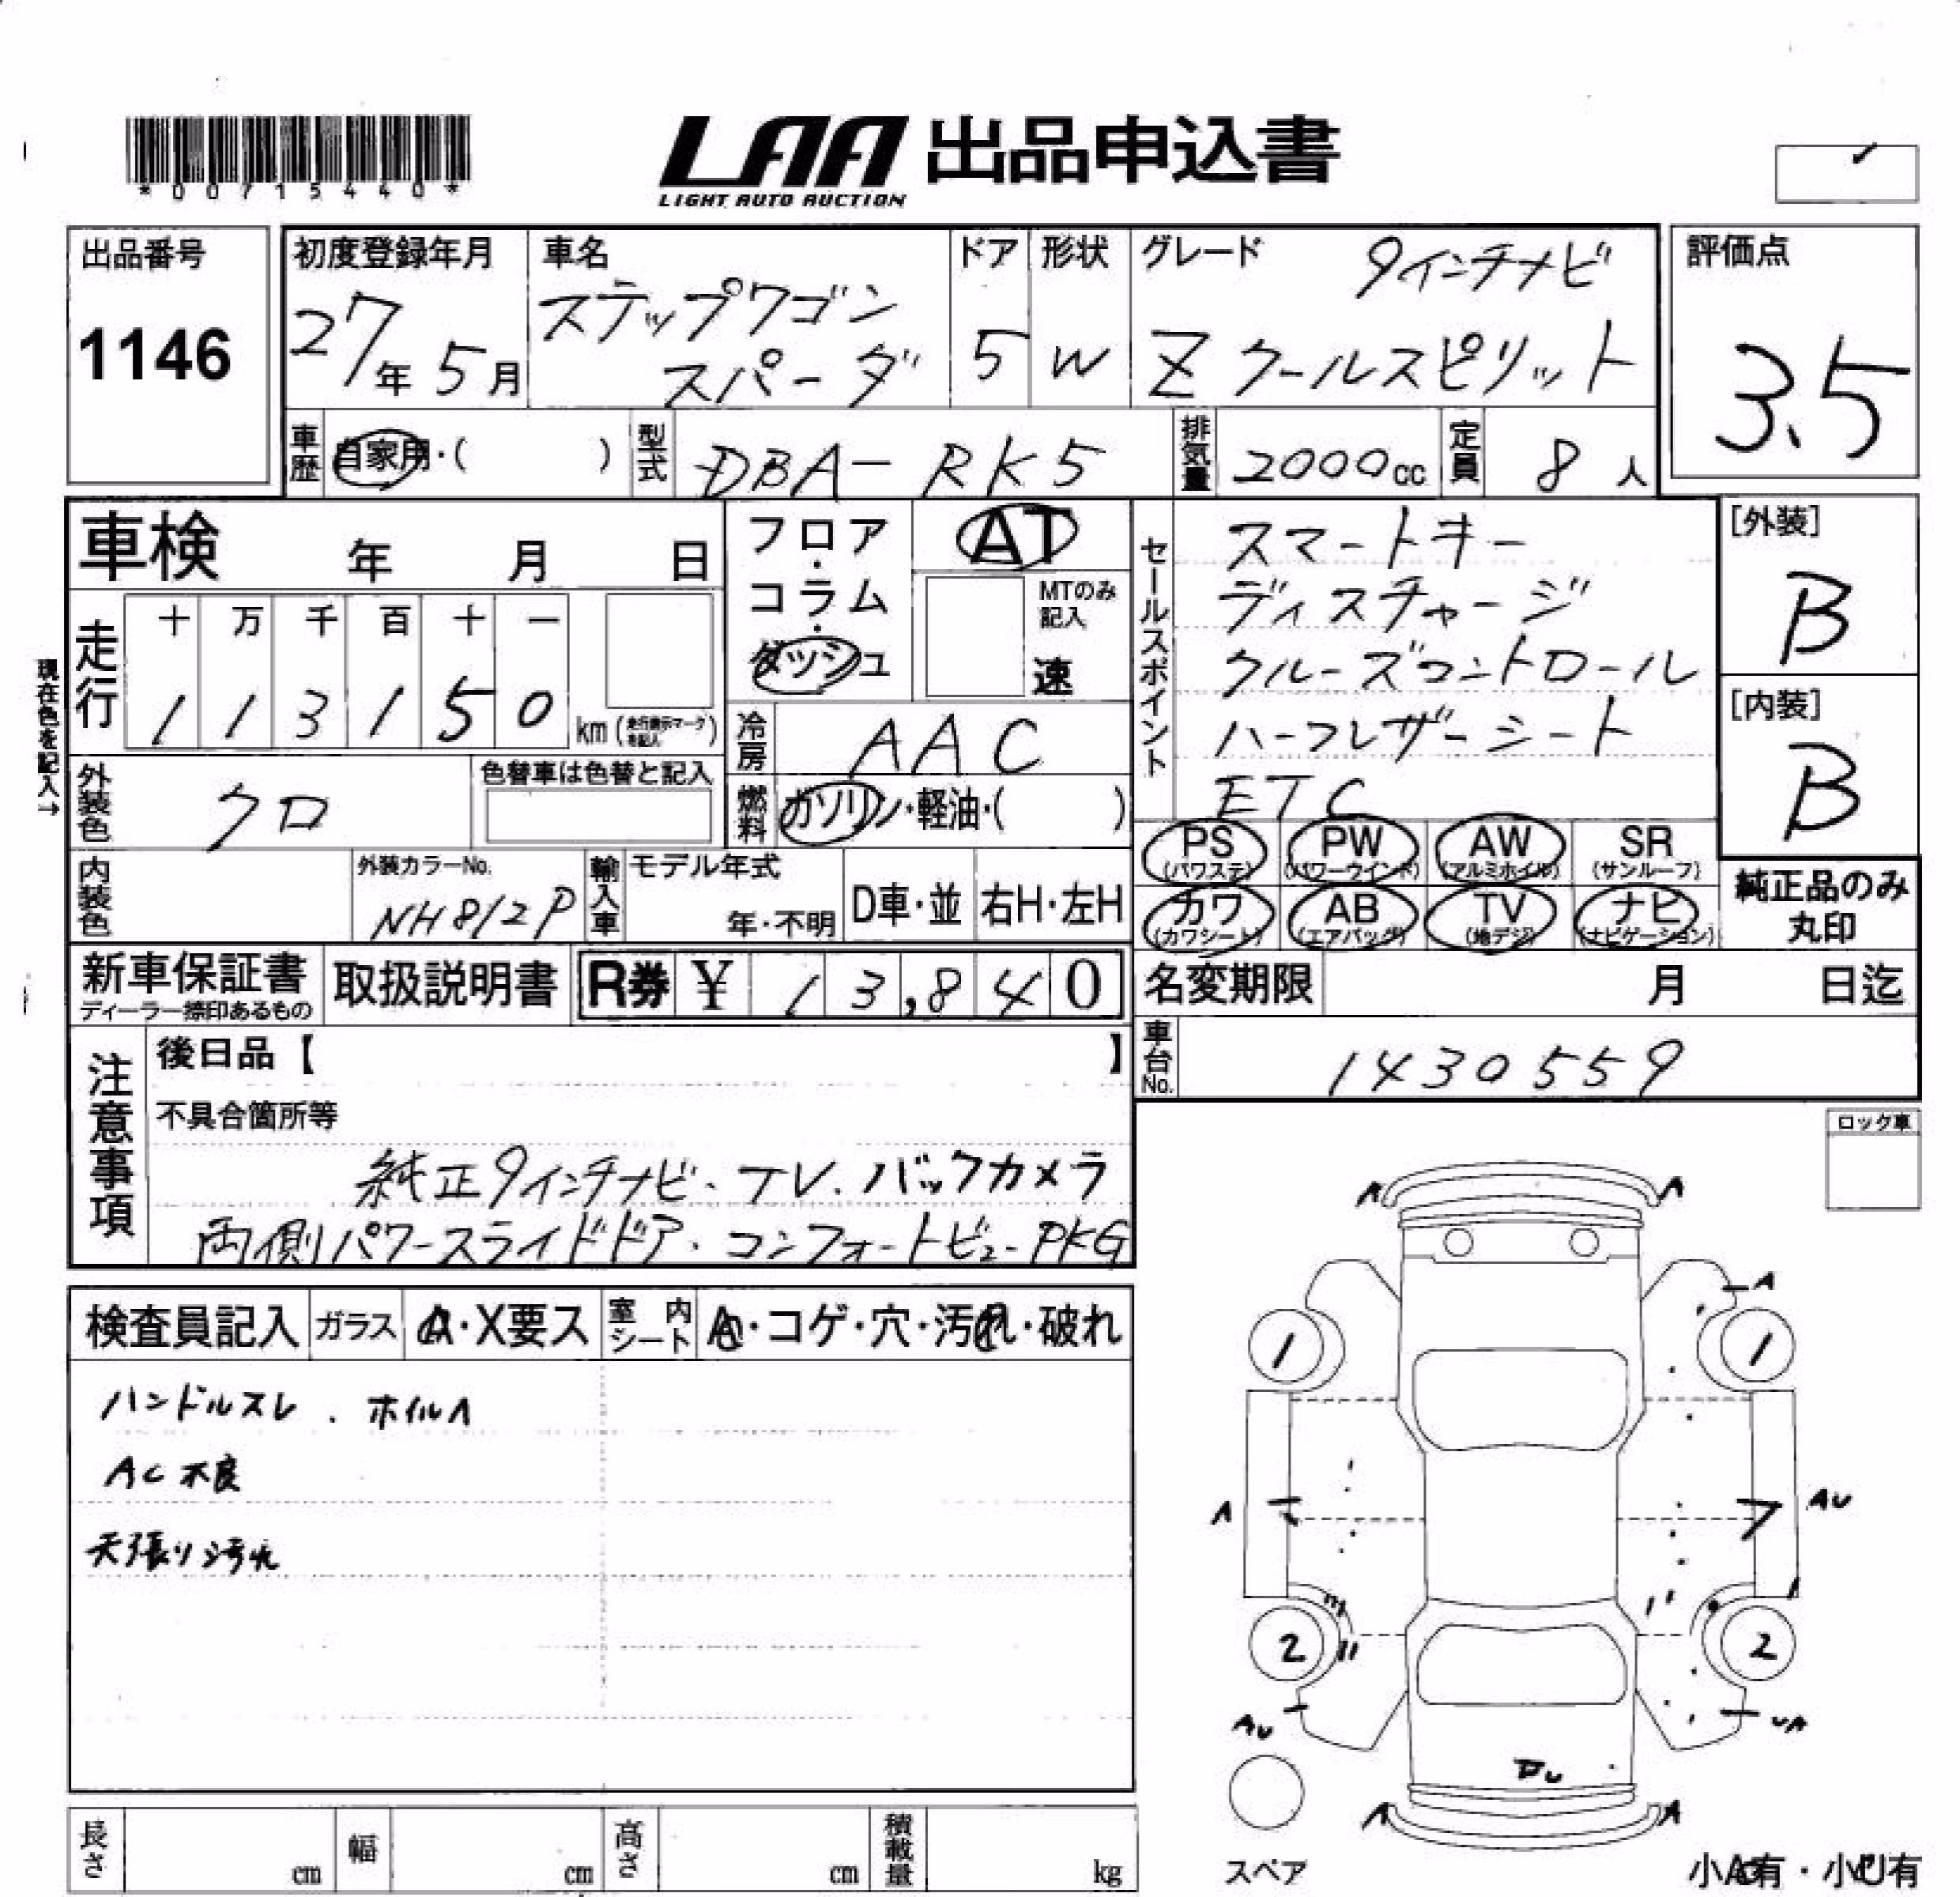 *00715440*
LAA 出品申込書
LIGHT AUTO AUCTION
出品番号
1146
初度登録年月
27年 5月
車名
ステップワゴン
スパーダ
ドア
5
形状
W
グレード
9インチナビ
Z クールスピリット
評価点
3.5
車歴 自家用・( )
型式 DBA-RK5
排気量 2000cc
定員 8人
車検 年 月 日
フロア・コラム・ダッシュ
AT
MTのみ記入
速
走行
十 万 千 百 十 一
1 1 3 1 5 0 km (走行表示マークを記入)
現在色を記入→
冷房 AAC
外装色 クロ
色替車は色替と記入
燃料 ガソリン・軽油・( )
内装色
外装カラーNo.
NH812P
輸入車
モデル年式
年・不明
D車・並
右H・左H
セールスポイント
スマートキー
ディスチャージ
クルーズコントロール
ハーフレザーシート
ETC
PS (パワステ)
PW (パワーウインド)
AW (アルミホイル)
SR (サンルーフ)
カワ (カワシート)
AB (エアバッグ)
TV (地デジ)
ナビ (ナビゲーション)
[外装]
B
[内装]
B
純正品のみ
丸印
新車保証書
ディーラー捺印あるもの
取扱説明書
R券 ¥ 13,840
名変期限 月 日迄
車台No. 1430559
注意事項
後日品【 】
不具合箇所等
純正9インチナビ・TV・バックカメラ
両側パワースライドドア・コンフォートビューPKG
ロック車
検査員記入
ガラス A・X要ス
室内シート ・コゲ・穴・汚れ・破れ
ハンドルスレ . ホイルA
AC不良
天張り汚れ
A A
A
1 1
A AU
2 2
AU UA
A A
スペア
小A有・小U有
長さ cm
幅 cm
高さ cm
積載量 kg